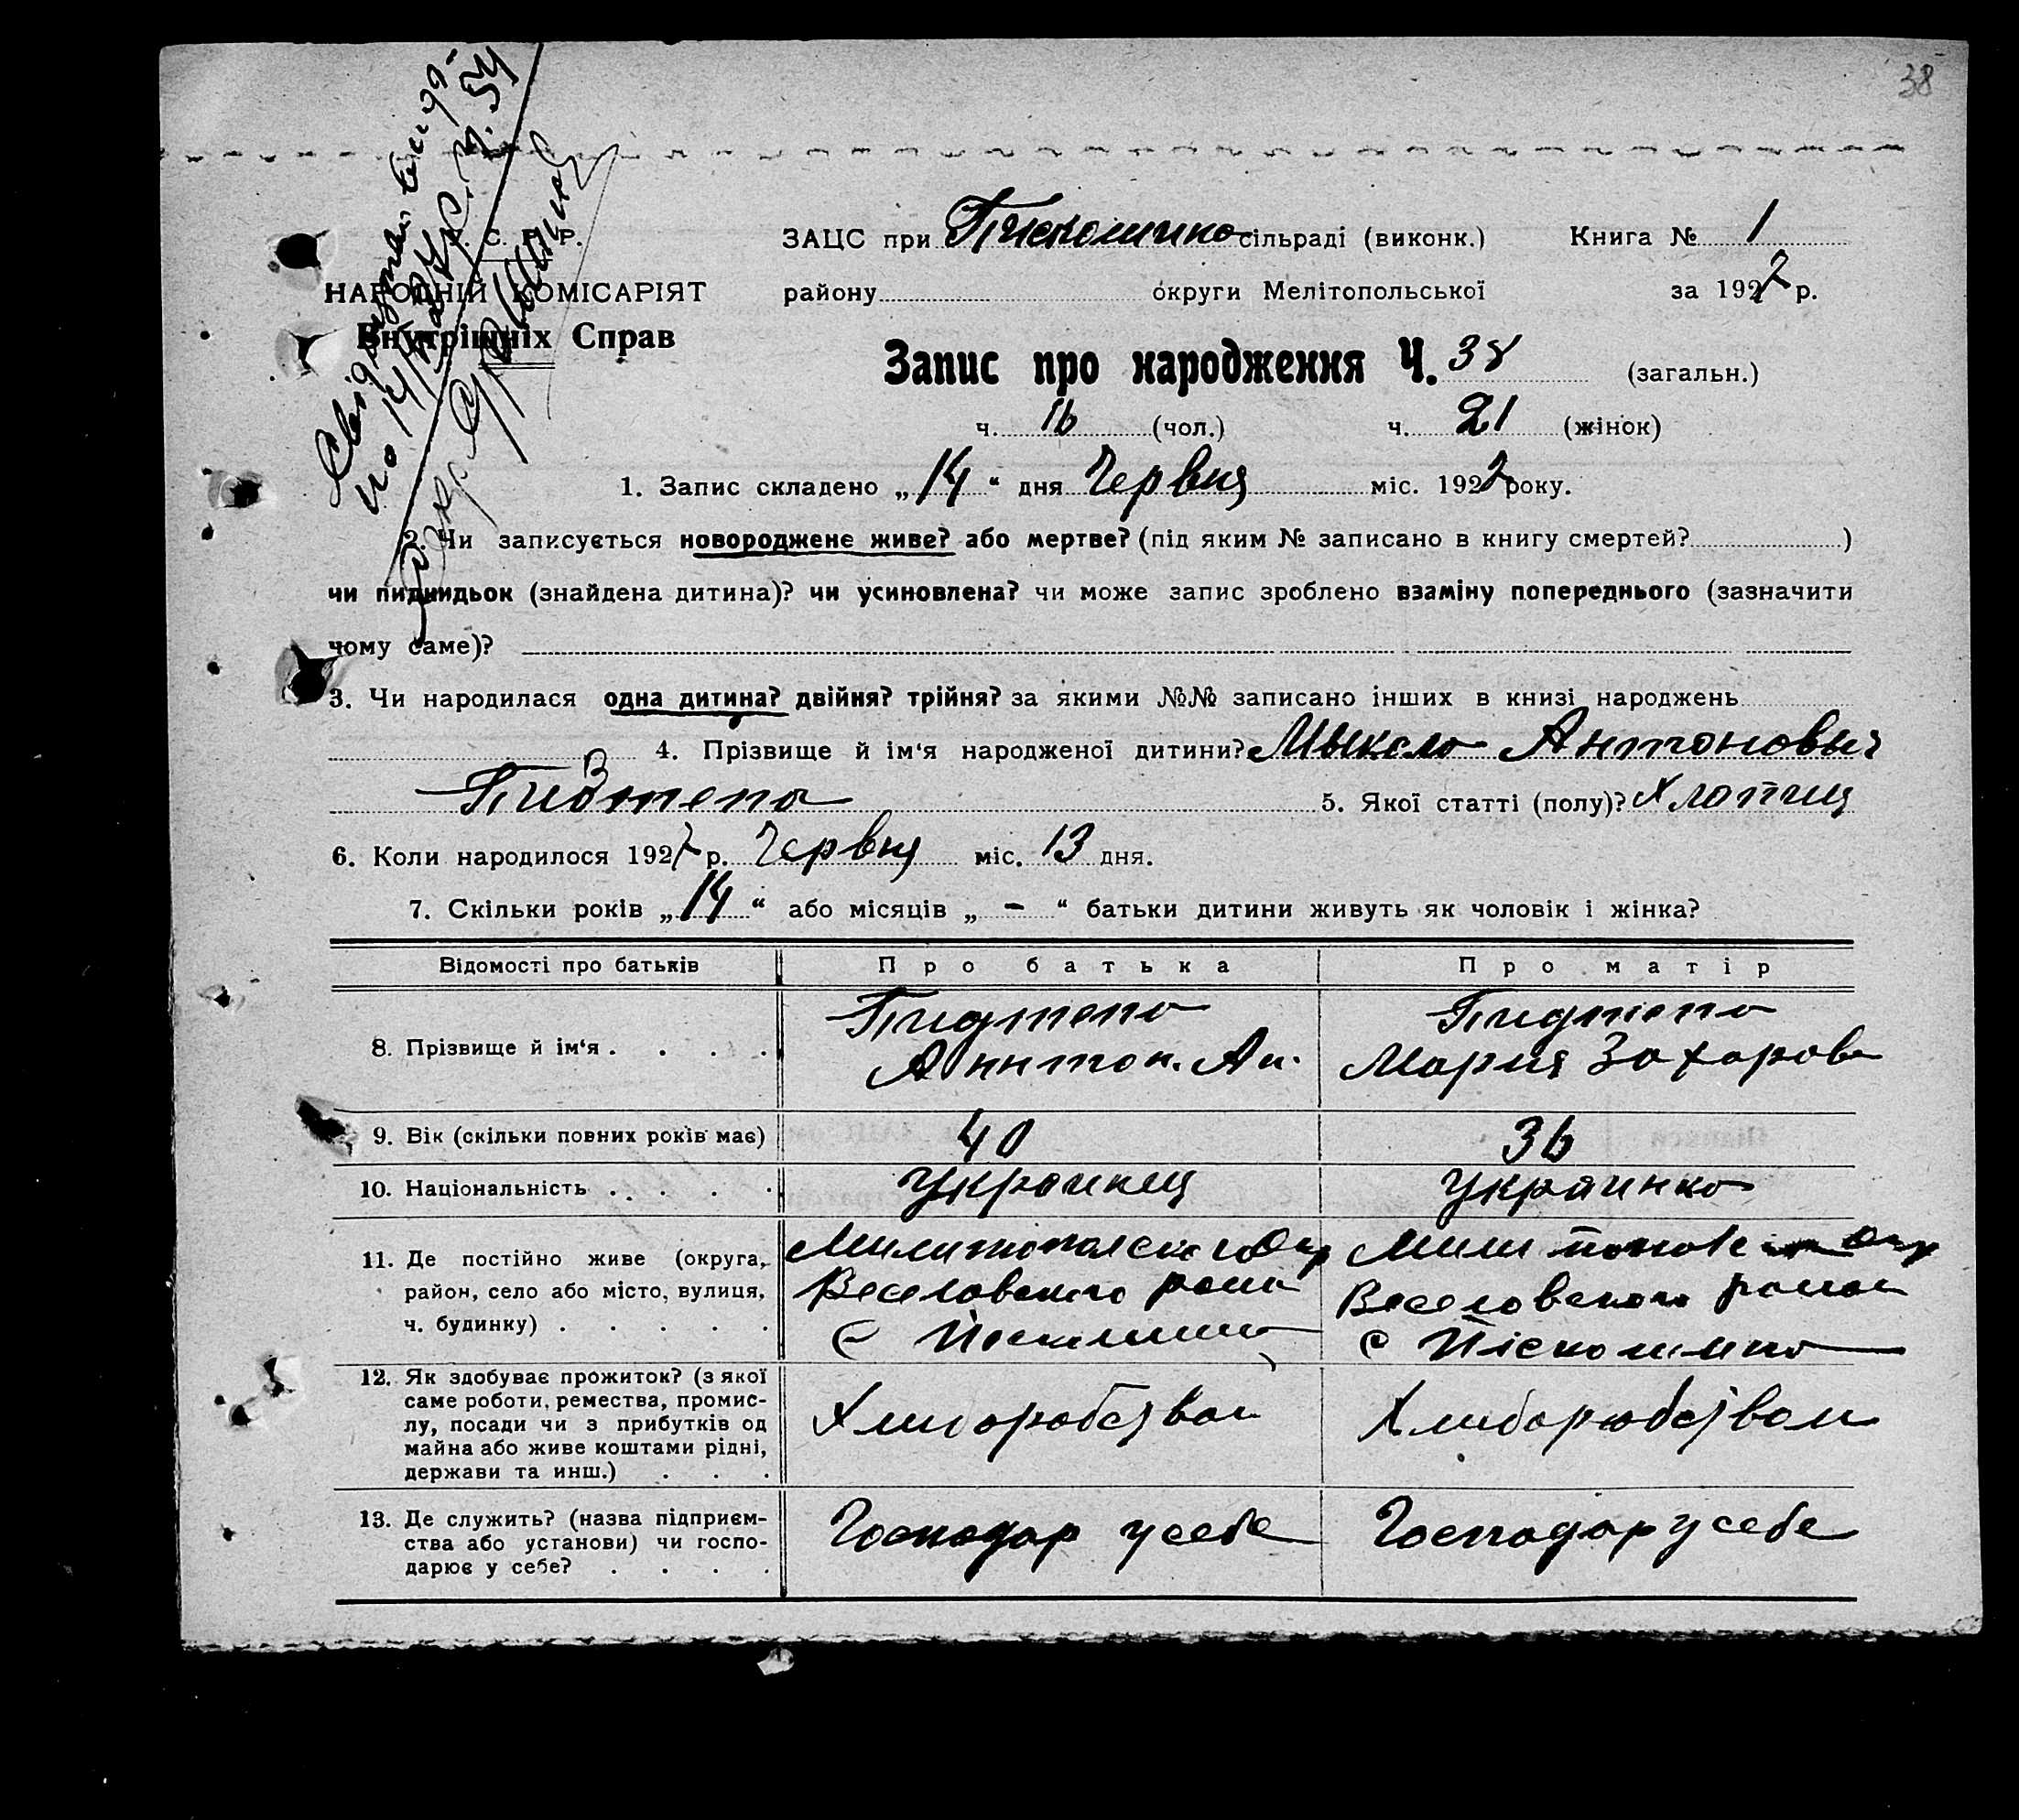 38
У. С. Р. Р.
НАРОДНІЙ КОМІСАРІЯТ
Внутрішніх Справ
ЗАЦС при Пискошино сільраді (виконк.) Книга № 1
району округи Мелітопольської за 1927 р.
Запис про народження Ч. 38 (загальн.)
ч. 16 (чол.) ч. 21 (жінок)
1. Запис складено „ 14 “ дня Червня міс. 1927 року.
2. Чи записується новороджене живе? або мертве? (під яким № записано в книгу смертей? )
чи пидкидьок (знайдена дитина)? чи усиновлена? чи може запис зроблено взаміну попереднього (зазначити
чому саме)?
3. Чи народилася одна дитина? двійня? трійня? за якими №№ записано інших в книзі народжень
4. Прізвище й ім‘я народженої дитини? Мыкола Антоновыч
Пидтепа 5. Якої статті (полу)? Хлопиц
6. Коли народилося 1927 р. Червня міс. 13 дня.
7. Скільки років „ 14 “ або місяців „ - “ батьки дитини живуть як чоловік і жінка?
Відомості про батьків Про батька Про матір
8. Прізвище й ім‘я . . . . Пидтепа Пидтепа
Антон. Ан. Мария Захарова
9. Вік (скільки повних років має) 40 36
10. Національність . . . . . Украинец Украинка
11. Де постійно живе (округа,
район, село або місто, вулиця,
ч. будинку) . . . . .
Веселовского Веселовского
с Пискошино с Піскошино
12. Як здобуває прожиток? (з якої
саме роботи, ремества, промис-
лу, посади чи з прибутків од
майна або живе коштами рідні,
держави та инш.) . . .
Хлиборобством Хлиборобством
13. Де служить? (назва підприєм-
ства або установи) чи госпо-
дарює у себе? . . . .
Господар у себе Господар у себе